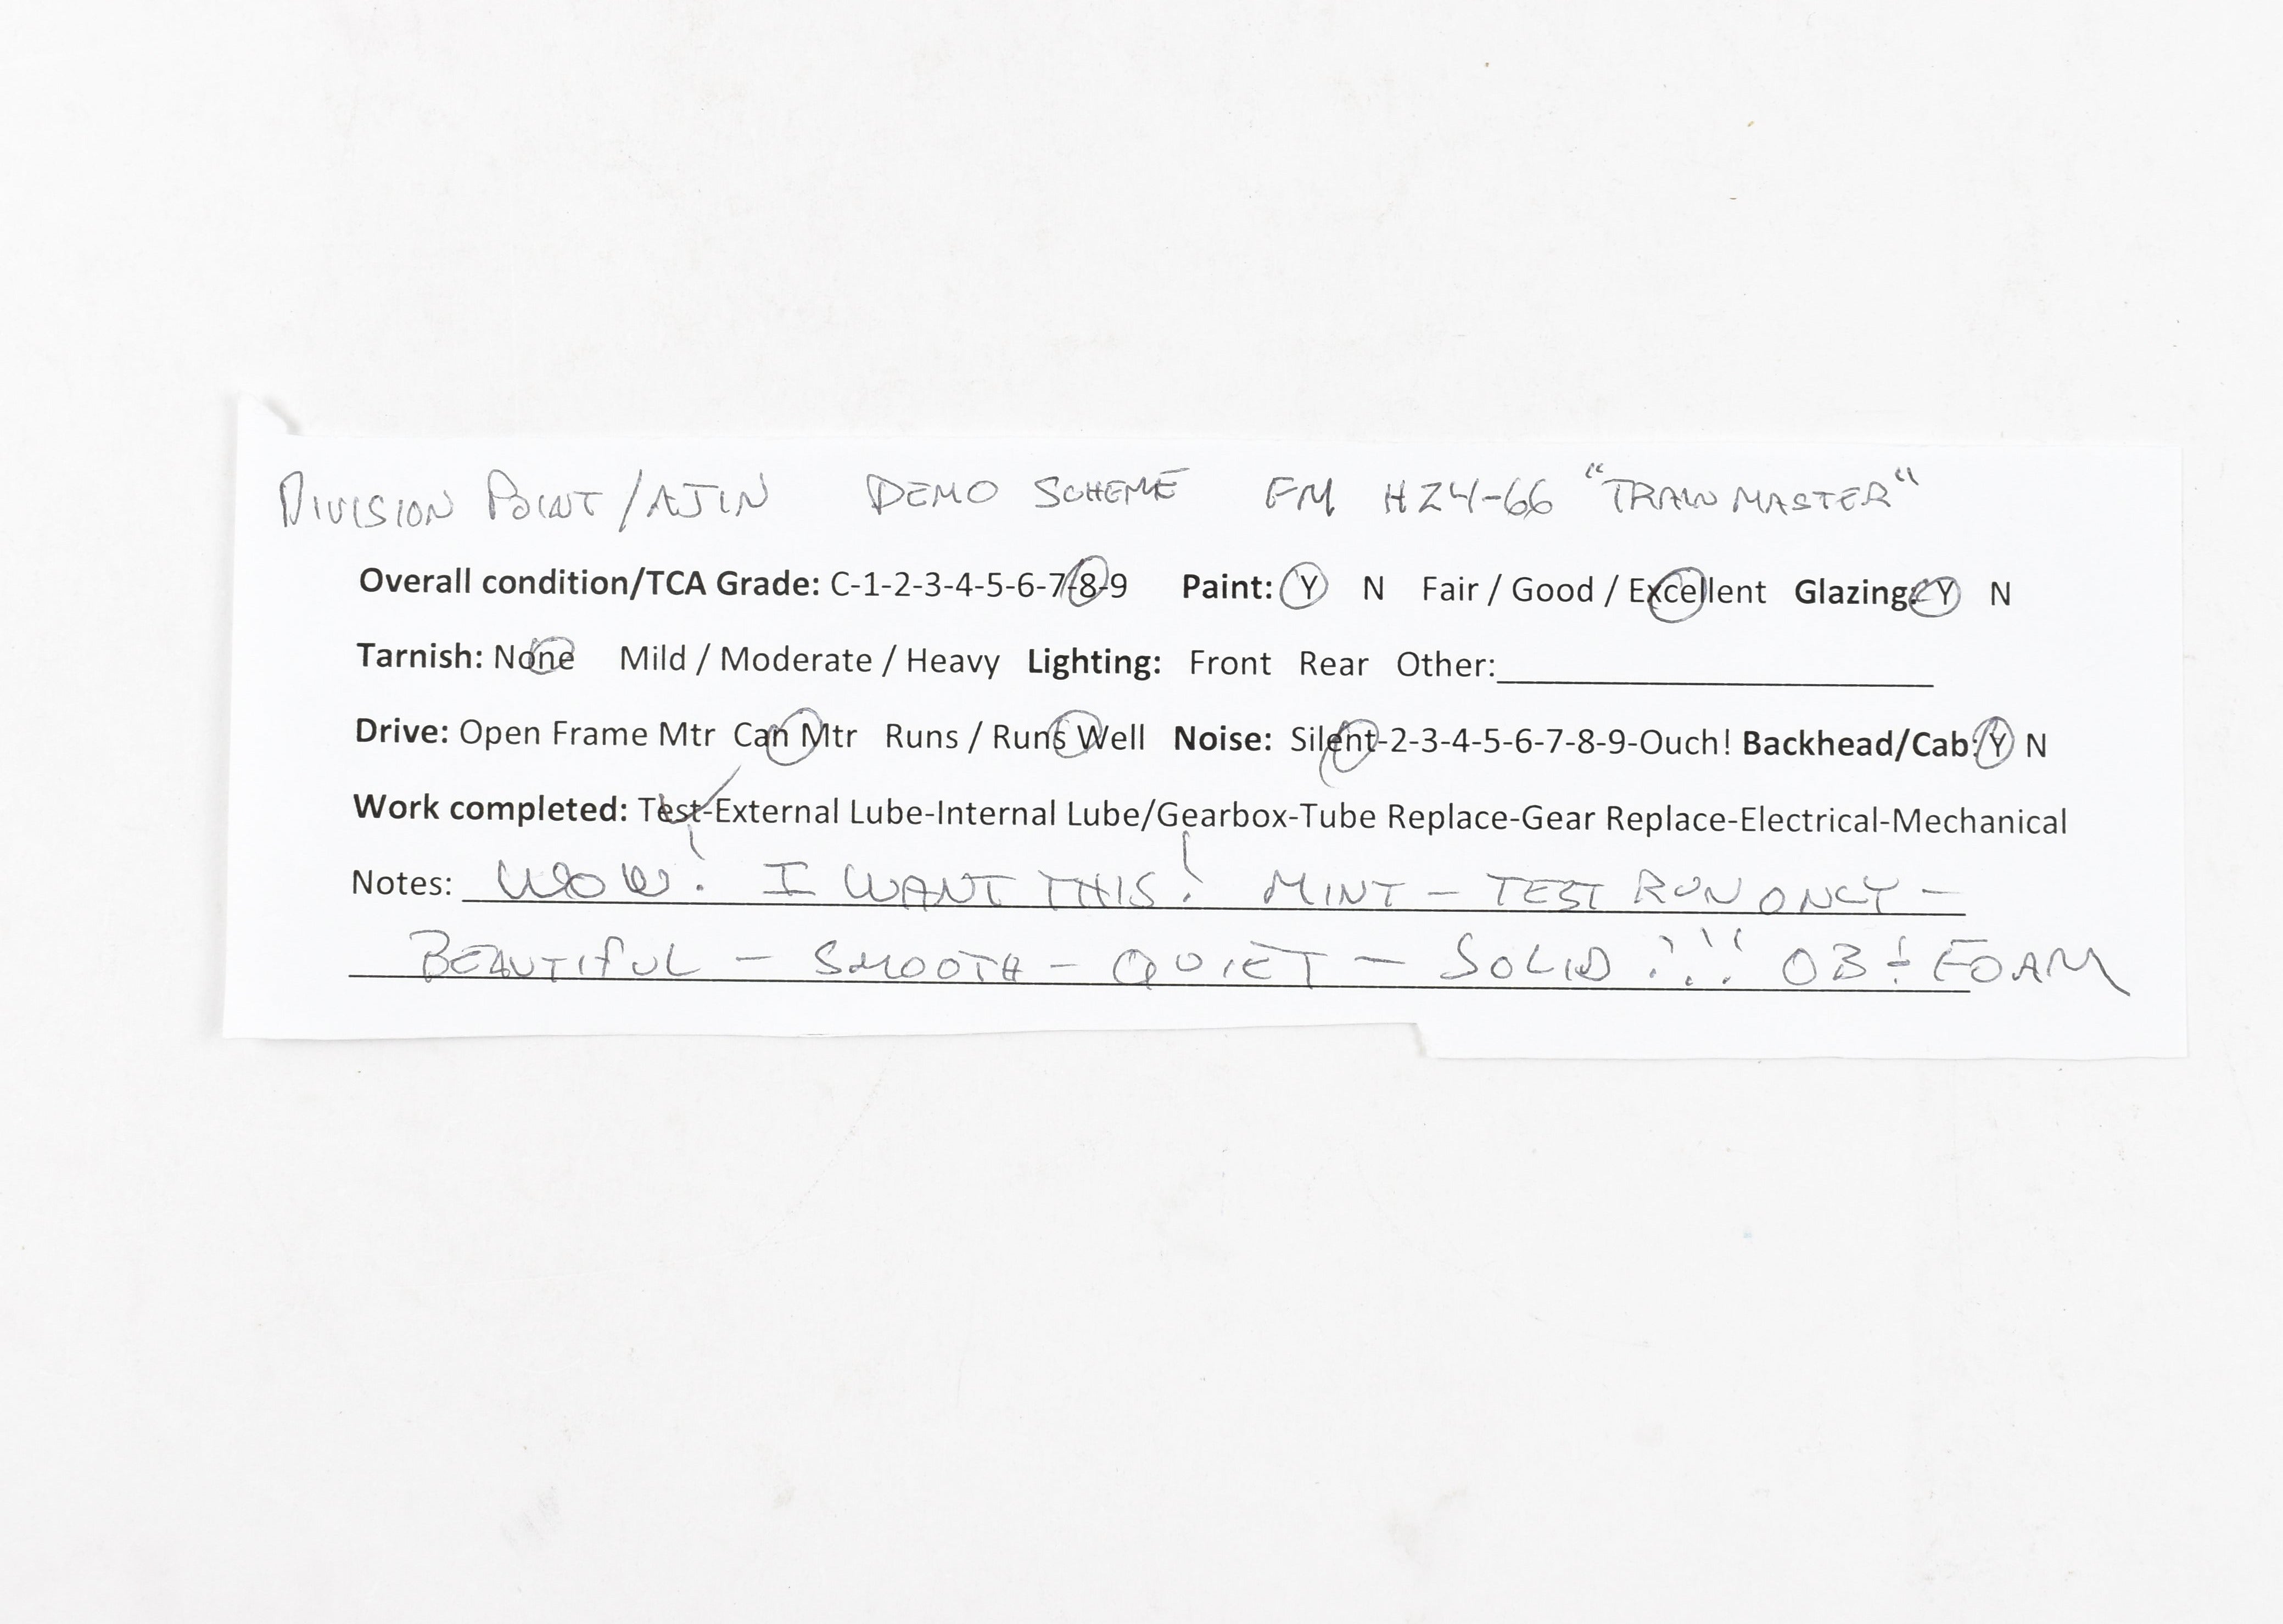 DIVISION POINT/AJIN DEMO SCHEME FM H24-66 "TRAINMASTER"
Overall condition/TCA Grade: C-1-2-3-4-5-6-7-8-9 Paint: Y N Fair / Good / Excellent Glazing: Y N
Tarnish: None Mild / Moderate / Heavy Lighting: Front Rear Other:
Drive: Open Frame Mtr Can Mtr Runs / Runs Well Noise: Silent-2-3-4-5-6-7-8-9-Ouch! Backhead/Cab: Y N
Work completed: Test-External Lube-Internal Lube/Gearbox-Tube Replace-Gear Replace-Electrical-Mechanical
Notes: WOW! I WANT THIS! MINT - TEST RUN ONLY -
BEAUTIFUL - SMOOTH - QUIET - SOLID!!! OB + FOAM